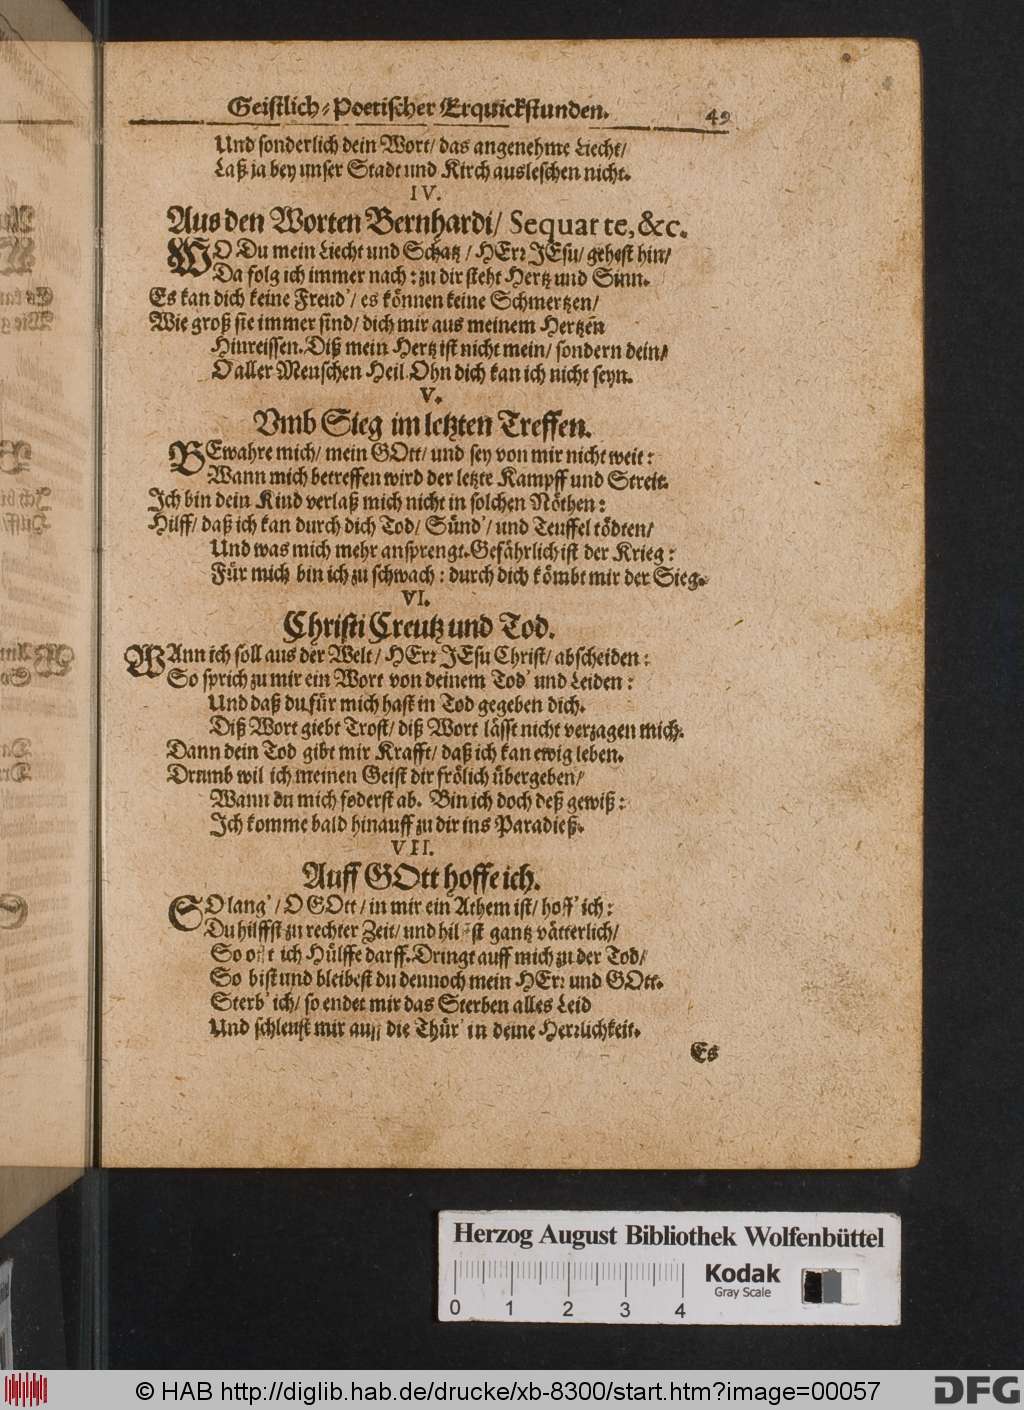 Geistlich-Poetischer Erquickstunden. 49
Und sonderlich dein Wort/ das angenehme Liecht/
Laß ja bey unser Stadt und Kirch ausleschen nicht.
IV.
Aus den Worten Bernhardi/ Sequar te, &c.
WO Du mein Liecht und Schatz/ HErr JEsu/ gehest hin/
Da folg ich immer nach: zu dir steht Hertz und Sinn.
Es kan dich keine Freud'/ es können keine Schmertzen/
Wie groß sie immer sind/ dich mir aus meinem Hertzen
Hinreissen. Diß mein Hertz ist nicht mein/ sondern dein/
O aller Menschen Heil. Ohn dich kan ich nicht seyn.
V.
Vmb Sieg im letzten Treffen.
BEwahre mich/ mein GOtt/ und sey von mir nicht weit:
Wann mich betreffen wird der letzte Kampff und Streit.
Ich bin dein Kind verlaß mich nicht in solchen Nöthen:
Hilff/ daß ich kan durch dich Tod/ Sünd'/ und Teuffel tödten/
Und was mich mehr ansprengt. Gefährlich ist der Krieg:
Für mich bin ich zu schwach: durch dich kömbt mir der Sieg.
VI.
Christi Creutz und Tod.
WAnn ich soll aus der Welt/ HErr JEsu Christ/ abscheiden:
So sprich zu mir ein Wort von deinem Tod' und Leiden:
Und daß du für mich hast in Tod gegeben dich.
Diß Wort giebt Trost/ diß Wort lässt nicht verzagen mich.
Dann dein Tod gibt mir Krafft/ daß ich kan ewig leben.
Drumb wil ich meinen Geist dir frölich übergeben/
Wann du mich foderst ab. Bin ich doch deß gewiß:
Ich komme bald hinauff zu dir ins Paradieß.
VII.
Auff GOtt hoffe ich.
SO lang'/ O GOtt/ in mir ein Athem ist/ hoff' ich:
Du hilffst zu rechter Zeit/ und hilfst gantz vätterlich/
So offt ich Hülffe darff. Dringt auff mich zu der Tod/
So bist und bleibest du dennoch mein HErr und GOtt.
Sterb' ich/ so endet mir das Sterben alles Leid
Und schleust mir auff die Thür' in deine Herrlichkeit.
Es
Herzog August Bibliothek Wolfenbüttel
Kodak
Gray Scale
0 1 2 3 4
© HAB http://diglib.hab.de/drucke/xb-8300/start.htm?image=00057
DFG